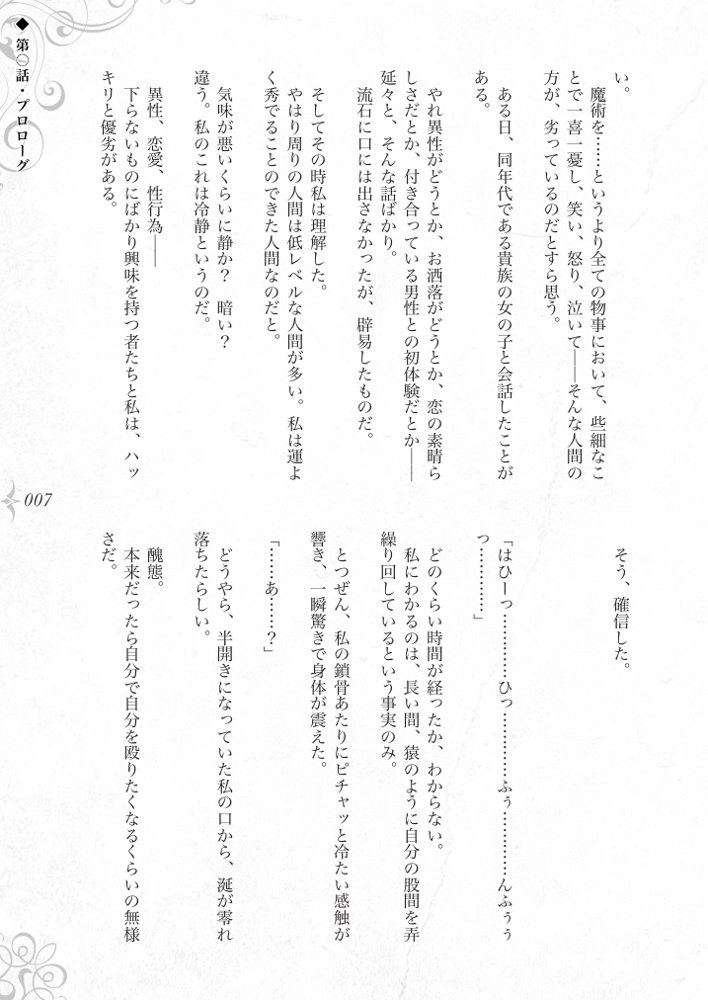 ◆ 第〇話・プロローグ
い。
魔術を……というより全ての物事において、些細なこ
とで一喜一憂し、笑い、怒り、泣いて――そんな人間の
方が、劣っているのだとすら思う。
ある日、同年代である貴族の女の子と会話したことが
ある。
やれ異性がどうとか、お洒落がどうとか、恋の素晴ら
しさだとか、付き合っている男性との初体験だとか――
延々と、そんな話ばかり。
流石に口には出さなかったが、辟易したものだ。
そしてその時私は理解した。
やはり周りの人間は低レベルな人間が多い。私は運よ
く秀でることのできた人間なのだと。
気味が悪いくらいに静か？　暗い？
違う。私のこれは冷静というのだ。
異性、恋愛、性行為――
下らないものにばかり興味を持つ者たちと私は、ハッ
キリと優劣がある。
そう、確信した。
「はひーっ…………ひっ…………ふぅ…………んふぅぅ
っ…………」
どのくらい時間が経ったか、わからない。
私にわかるのは、長い間、猿のように自分の股間を弄
繰り回しているという事実のみ。
とつぜん、私の鎖骨あたりにピチャッと冷たい感触が
響き、一瞬驚きで身体が震えた。
「……あ……？」
どうやら、半開きになっていた私の口から、涎が零れ
落ちたらしい。
醜態。
本来だったら自分で自分を殴りたくなるくらいの無様
さだ。
007